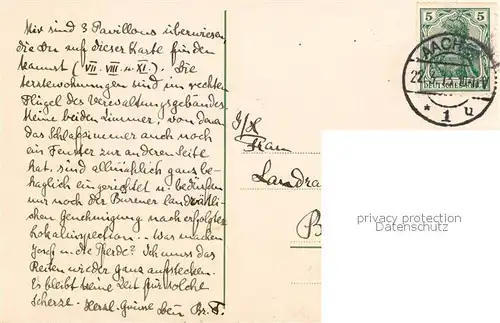 Mir sind 3 Pavillons überwiesen,
die Du auf dieser Karte finden
kannst (VII. VIII. u. XI.). Die
Ärztewohnungen sind im rechten
Flügel des Verwaltungsgebäudes
Meine beiden Zimmer, von denen
das Schlafzimmer auch noch
ein Fenster zur anderen Seite
hat, sind allmählich ganz be-
haglich eingerichtet u. bedürfen
nur noch der Burener landrätli-
chen Genehmigung nach erfolgter
Lokalinspection. Was machen
u. die Pferde? Ich muss das
Reiten wieder ganz aufstecken.
Es bleibt keine Zeit für solche
Scherze. Herzl. Grüsse Dein Br. F.
5 5
AACHEN
22.
DEUTSCHES REICH
* 1 u
I/H
Frau
Landra
B
privacy protection
Datenschutz